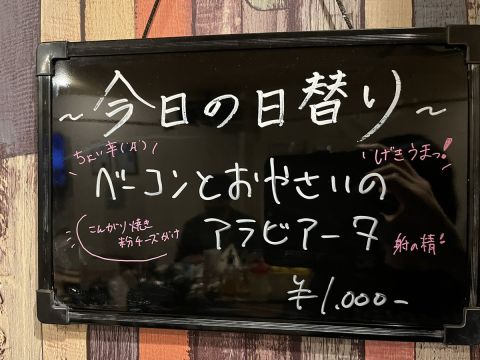 ～今日の日替り～
ちょい辛(°Д°)
げきうまっ!
ベーコンとおやさいの
こんがり焼き
粉チーズがけ
アラビアータ
¥1.000-